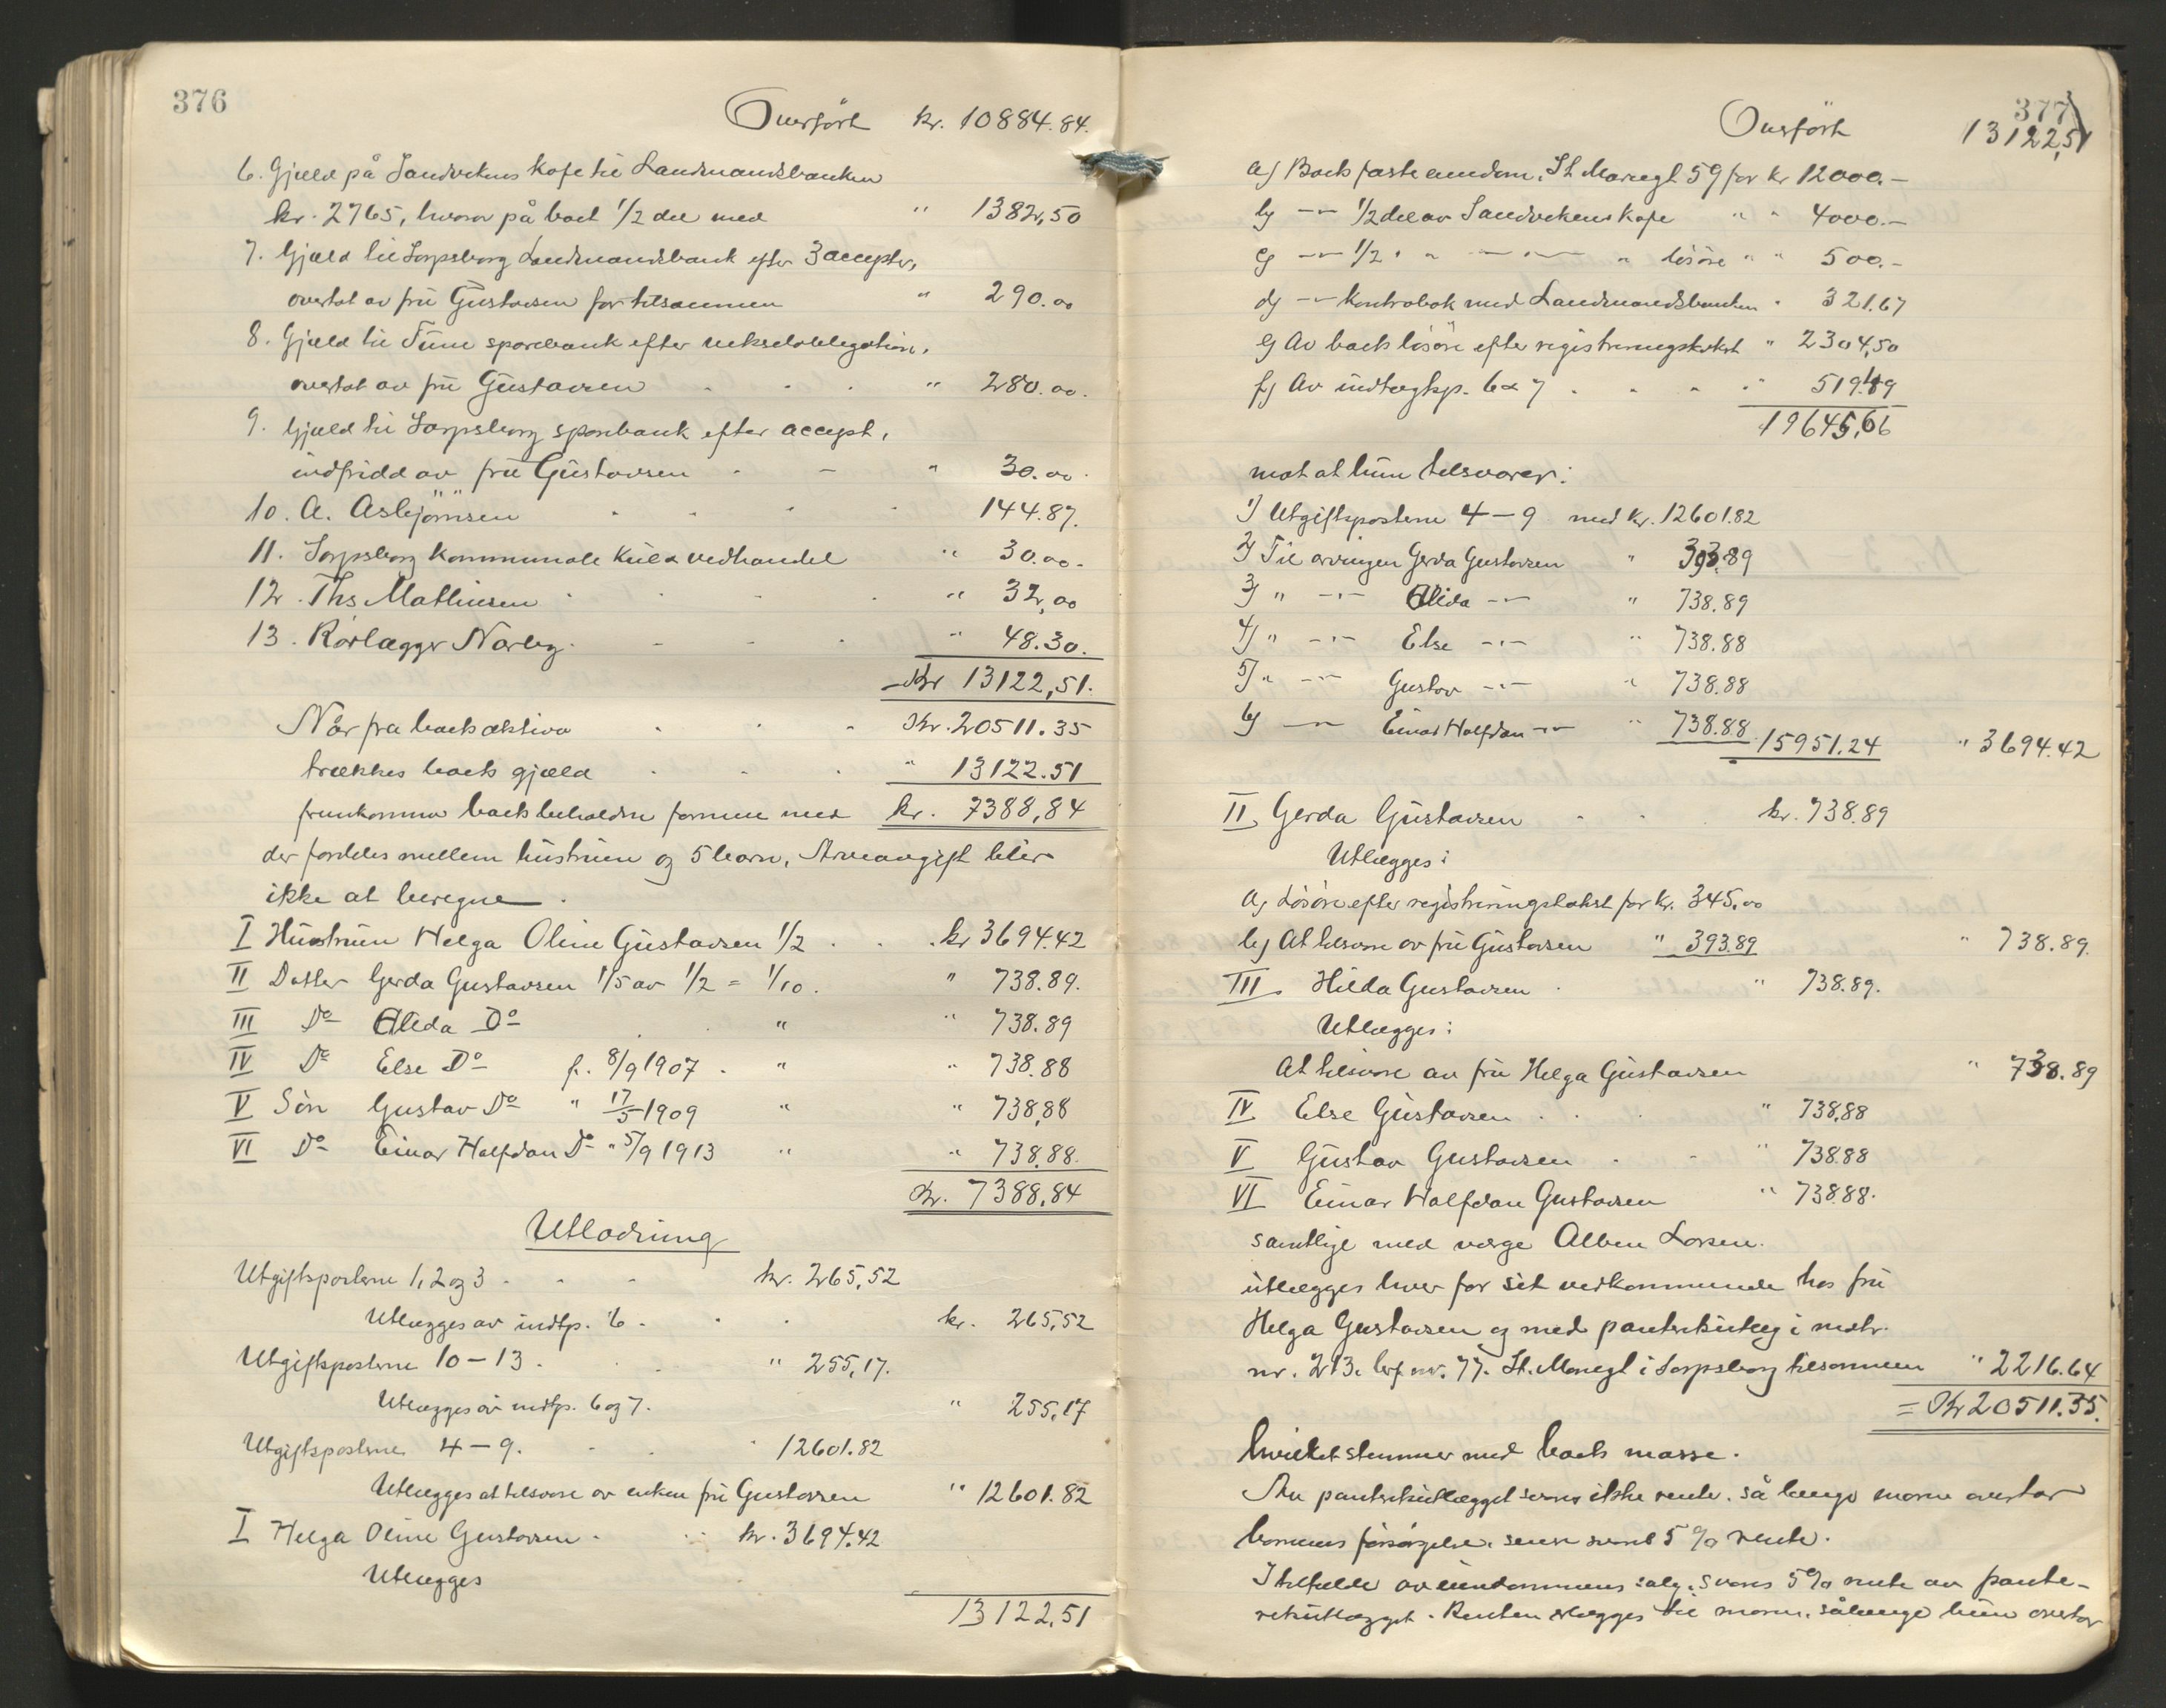 376
Overført kr. 10884.84.
6. Gjæld på Sandvekens kafe til Landmandsbanken
kr. 2765, hvorav på boet 1/2 del med " 1382,50
7. Gjæld til Sarpsborg Landmandsbank efter 3 accepter,
overtat av fru Gustavsen for tilsammen " 290.00
8. Gjæld til Tune sparebank efter vekselobligation,
overtat av fru Gustavsen " 280.00.
9. Gjæld til Sarpsborg sparebank efter accept,
indfridd av fru Gustavsen " 30.00.
10. A. Asbjörnsen 144.87.
11. Sarpsborg kommunale kul & vedhandel " 30.00.
12. Ths Mathiesen " 32,00
13. Rørlægger Norby. " 48.30.
Kr 13122,51.
Når fra boets aktiva Kr. 20511.35
trækkes boets gjæld " 13122.51
fremkommer boets beholdne formue med kr. 7388,84
der fordeles mellem hustruen og 5 barn, Arveavgift blir
ikke at beregne.
I Hustruen Helga Oline Gustavsen 1/2 . . . kr 3694.42
II Datter Gerda Gustavsen 1/5 av 1/2 = 1/10 . " 738.89.
III Do Alida Do " " 738.89
IV Do Else Do f. 8/9 1907 . " " 738.88
V Søn Gustav Do " 17/5 1909 " " 738,88
VI Do Einar Halfdan Do " 5/9 1913 " " 738.88.
Kr. 7388,84
Utlodning
Utgiftsposterne 1, 2 og 3 . - - kr. 265,52
Utlægges av indtp. 6 . . . kr. 265,52
Utgiftsposterne 10 - 13 . " 255,17.
Utlægges av indtp. 6 og 7. " 255,17
Utgiftsposterne 4 - 9. " 12601.82
Utlægges at tilsvare av enken fru Gustavsen " 12601.82
I Helga Oline Gustavsen . kr. 3694.42
Utlægges
13122,51
377
Overført 13122,51
a) Boets faste eiendom, St Mariegt 59 for kr 12000.-
b) -"- 1/2 del av Sandvekens kafe " " 4000.-
c) -"- 1/2 " " -"- -"- " løsøre " " 500.-
d) -"- kontrabok med Landmandsbanken " 321.67
e) Av boets løsøre efter registreringstakst " 2304,50
f) Av indtægtsp. 6 & 7 . . . " 519.49
19645,66
mot at hun tilsvarer:
1) Utgiftsposterne 4 - 9 med kr. 12601.82
2) Til arvingen Gerda Gustavsen " 393.89
3) " -"- Alida -"- " 738.89
4) " -"- Else -"- " 738.88
5) " -"- Gustav -"- " 738.88
6) -"- Einar Halfdan -"- " 738.88 15951.24 " 3694.42
II, Gerda Gustavsen . . kr. 738.89
Utlægges:
a, Løsøre efter registreringstakst for kr. 345,00
b) At tilsvare av fru Gustavsen " 393.89 " 738.89.
III. Hilda Gustavsen . " 738.89.
Utlægges:
At tilsvare av fru Helga Gustavsen " 738.89
IV Else Gustavsen . . . " 738,88
V Gustav Gustavsen . - " 738.88
VI Einar Halfdan Gustavsen " 738.88.
samtlige med værge Alben Larsen.
utlægges hver for sit vedkommende hos fru
Helga Gustavsen og med panteretsutlæg i matr.
nr. 213. løp nr. 77. St. Mariegt i Sarpsborg tilsammen " 2216.64
= Kr 20511.35.
hvilket stemmer med boets masse.
Av panteretsutlægget svares ikke rente, så længe moren overtar
barnenes forsørgelse, senere svares 5 % rente.
I tilfælde av eiendommens salg, svares 5% rente av pante-
retsutlægget. Renten erlægges til moren, sålænge hun overtar